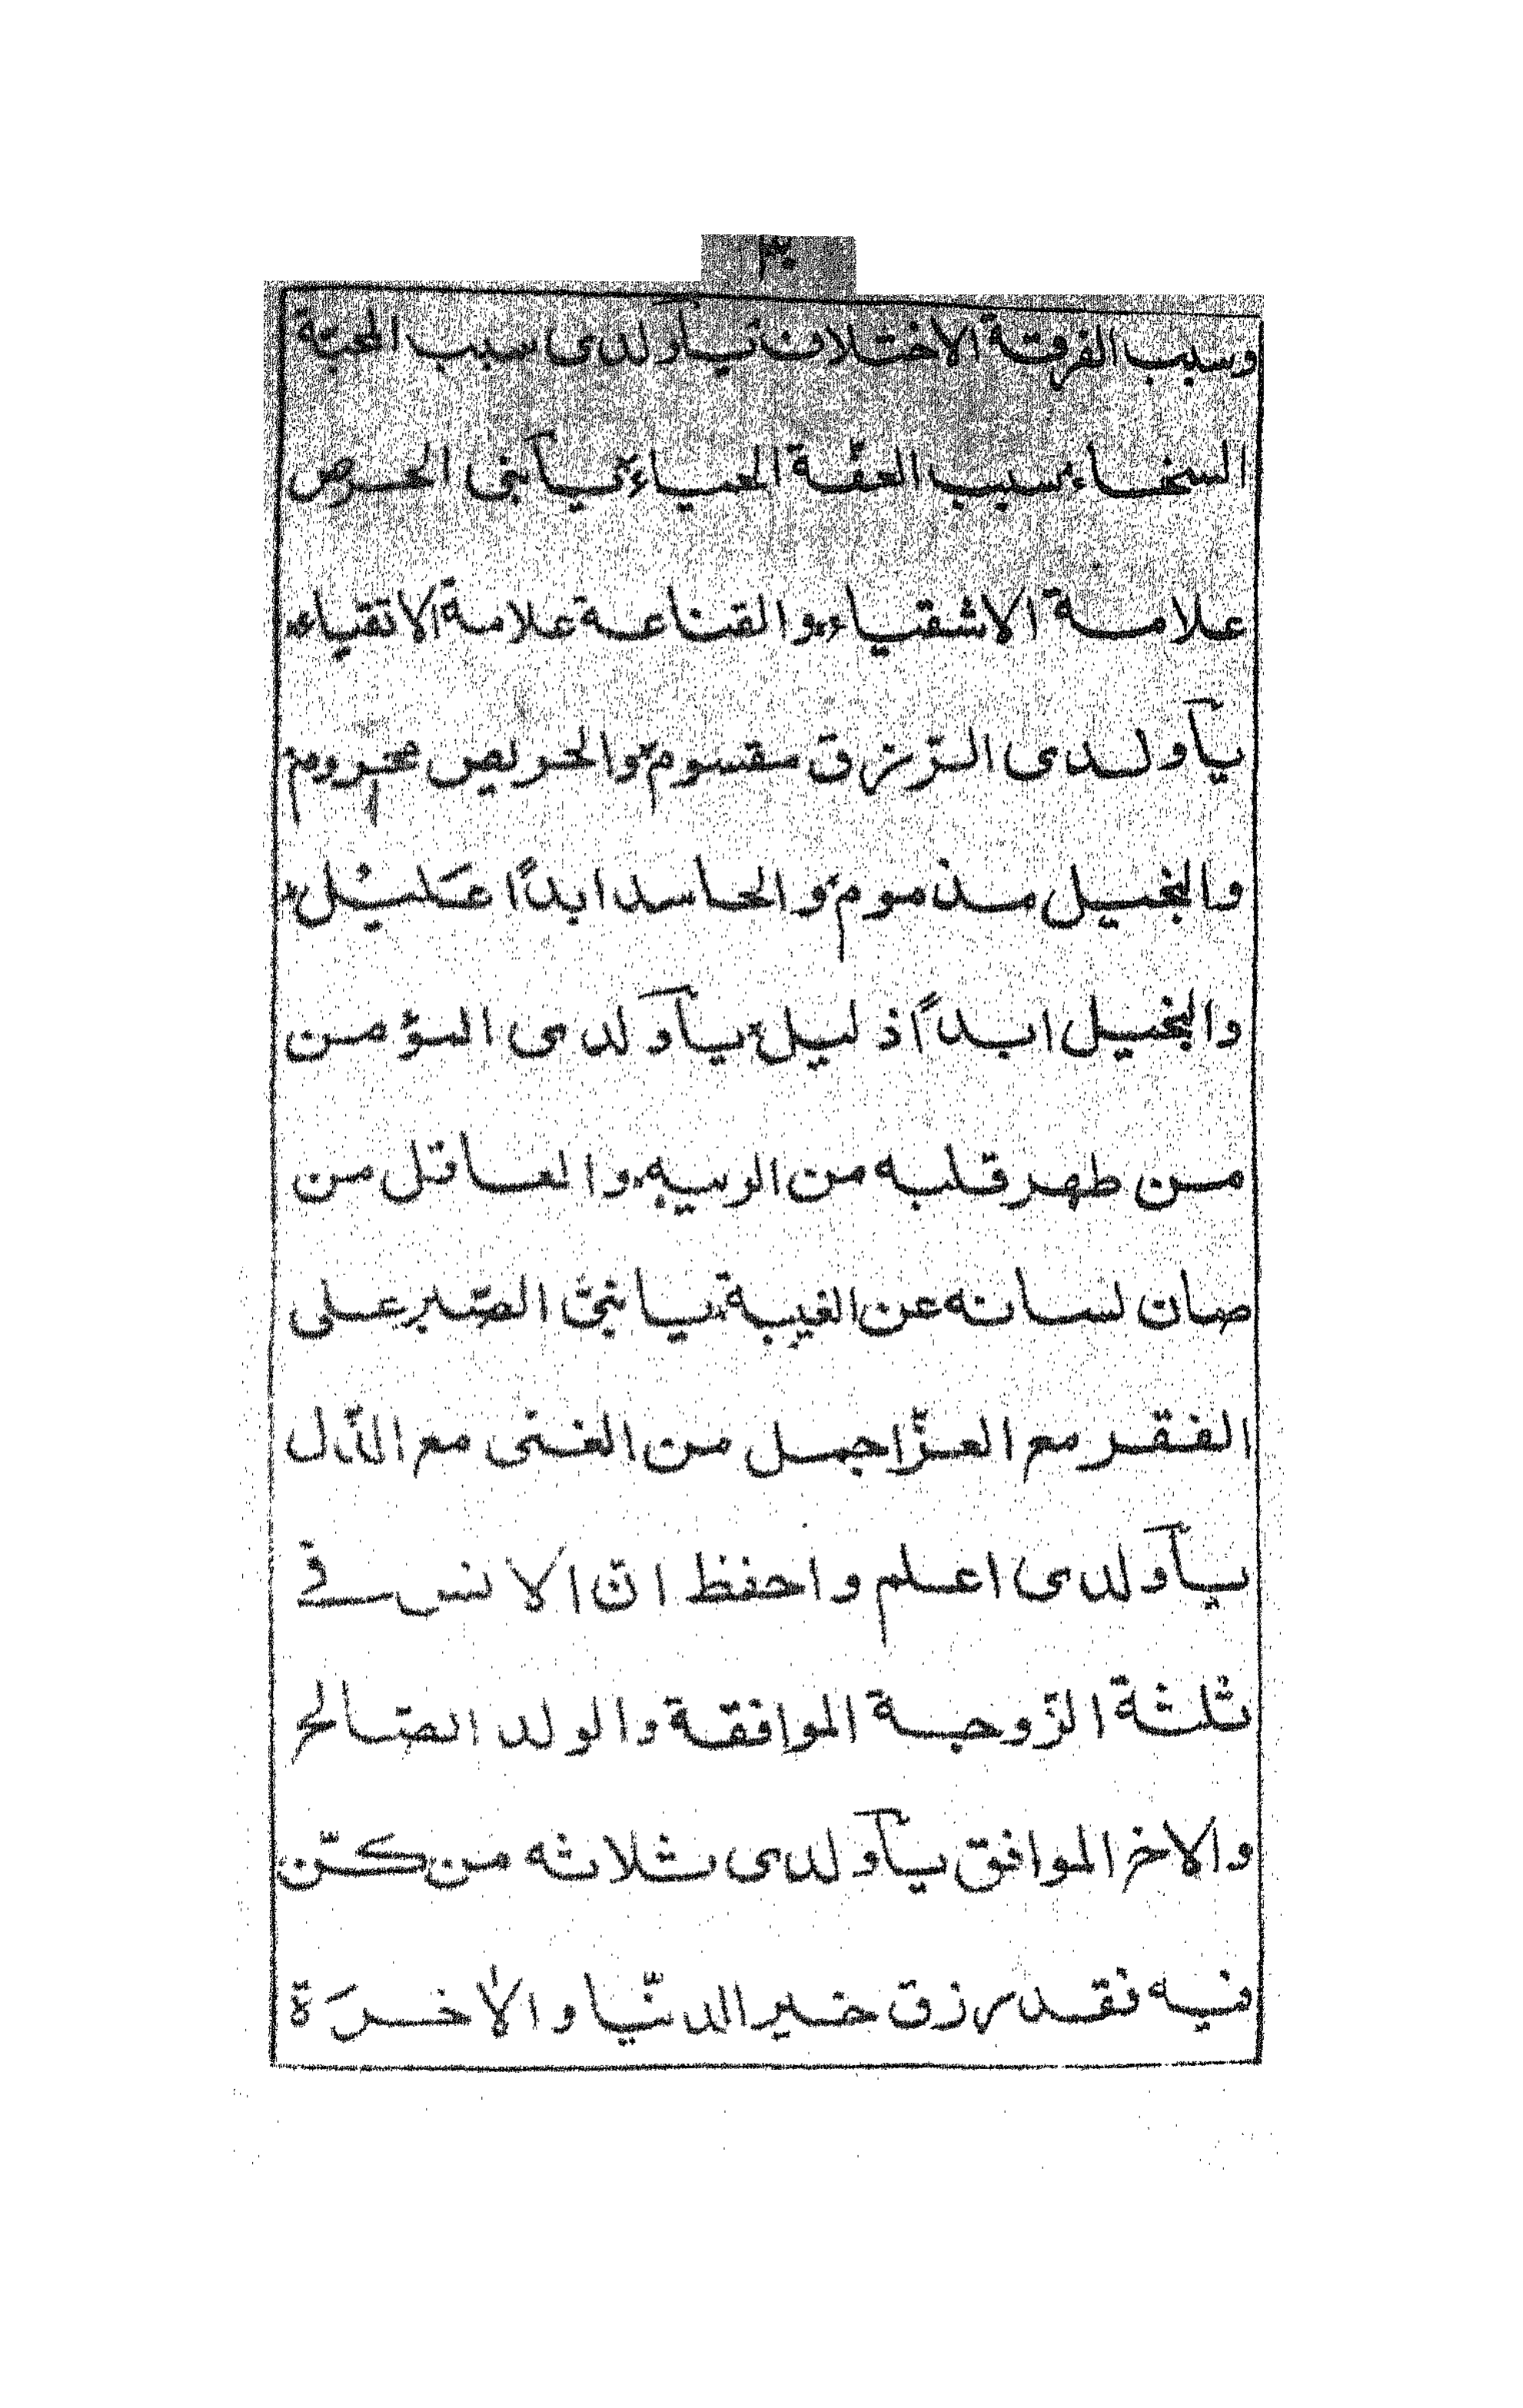 ٣٠
وسبب الفرقة الاختلاف يآولدى سبب المحبّة
السخاء سبب العفّة الحياء يآبنى الحرص
علامة الاشقياء والقناعة علامة الاتقياء
يآولدى الرّزق مقسوم والحريص محروم
والبخيل مذموم والحاسد ابدًا عَليْل
والبخيل ابدًا ذليل يآولدى المؤمن
من طهر قلبه من الريبه والعاقل من
صان لسانه عن الغيبة يابنىّ الصّبر على
الفقر مع العزّ اجمل من الغنى مع الذّل
يآولدى اعلم واحفظ انّ الانس فى
ثلثة الزّوجة الموافقة والولد الصّالح
والاخ الموافق يآولدى ثلاثه من كنّ
فيه فقد رزق خير الدنّيا والأخرَة